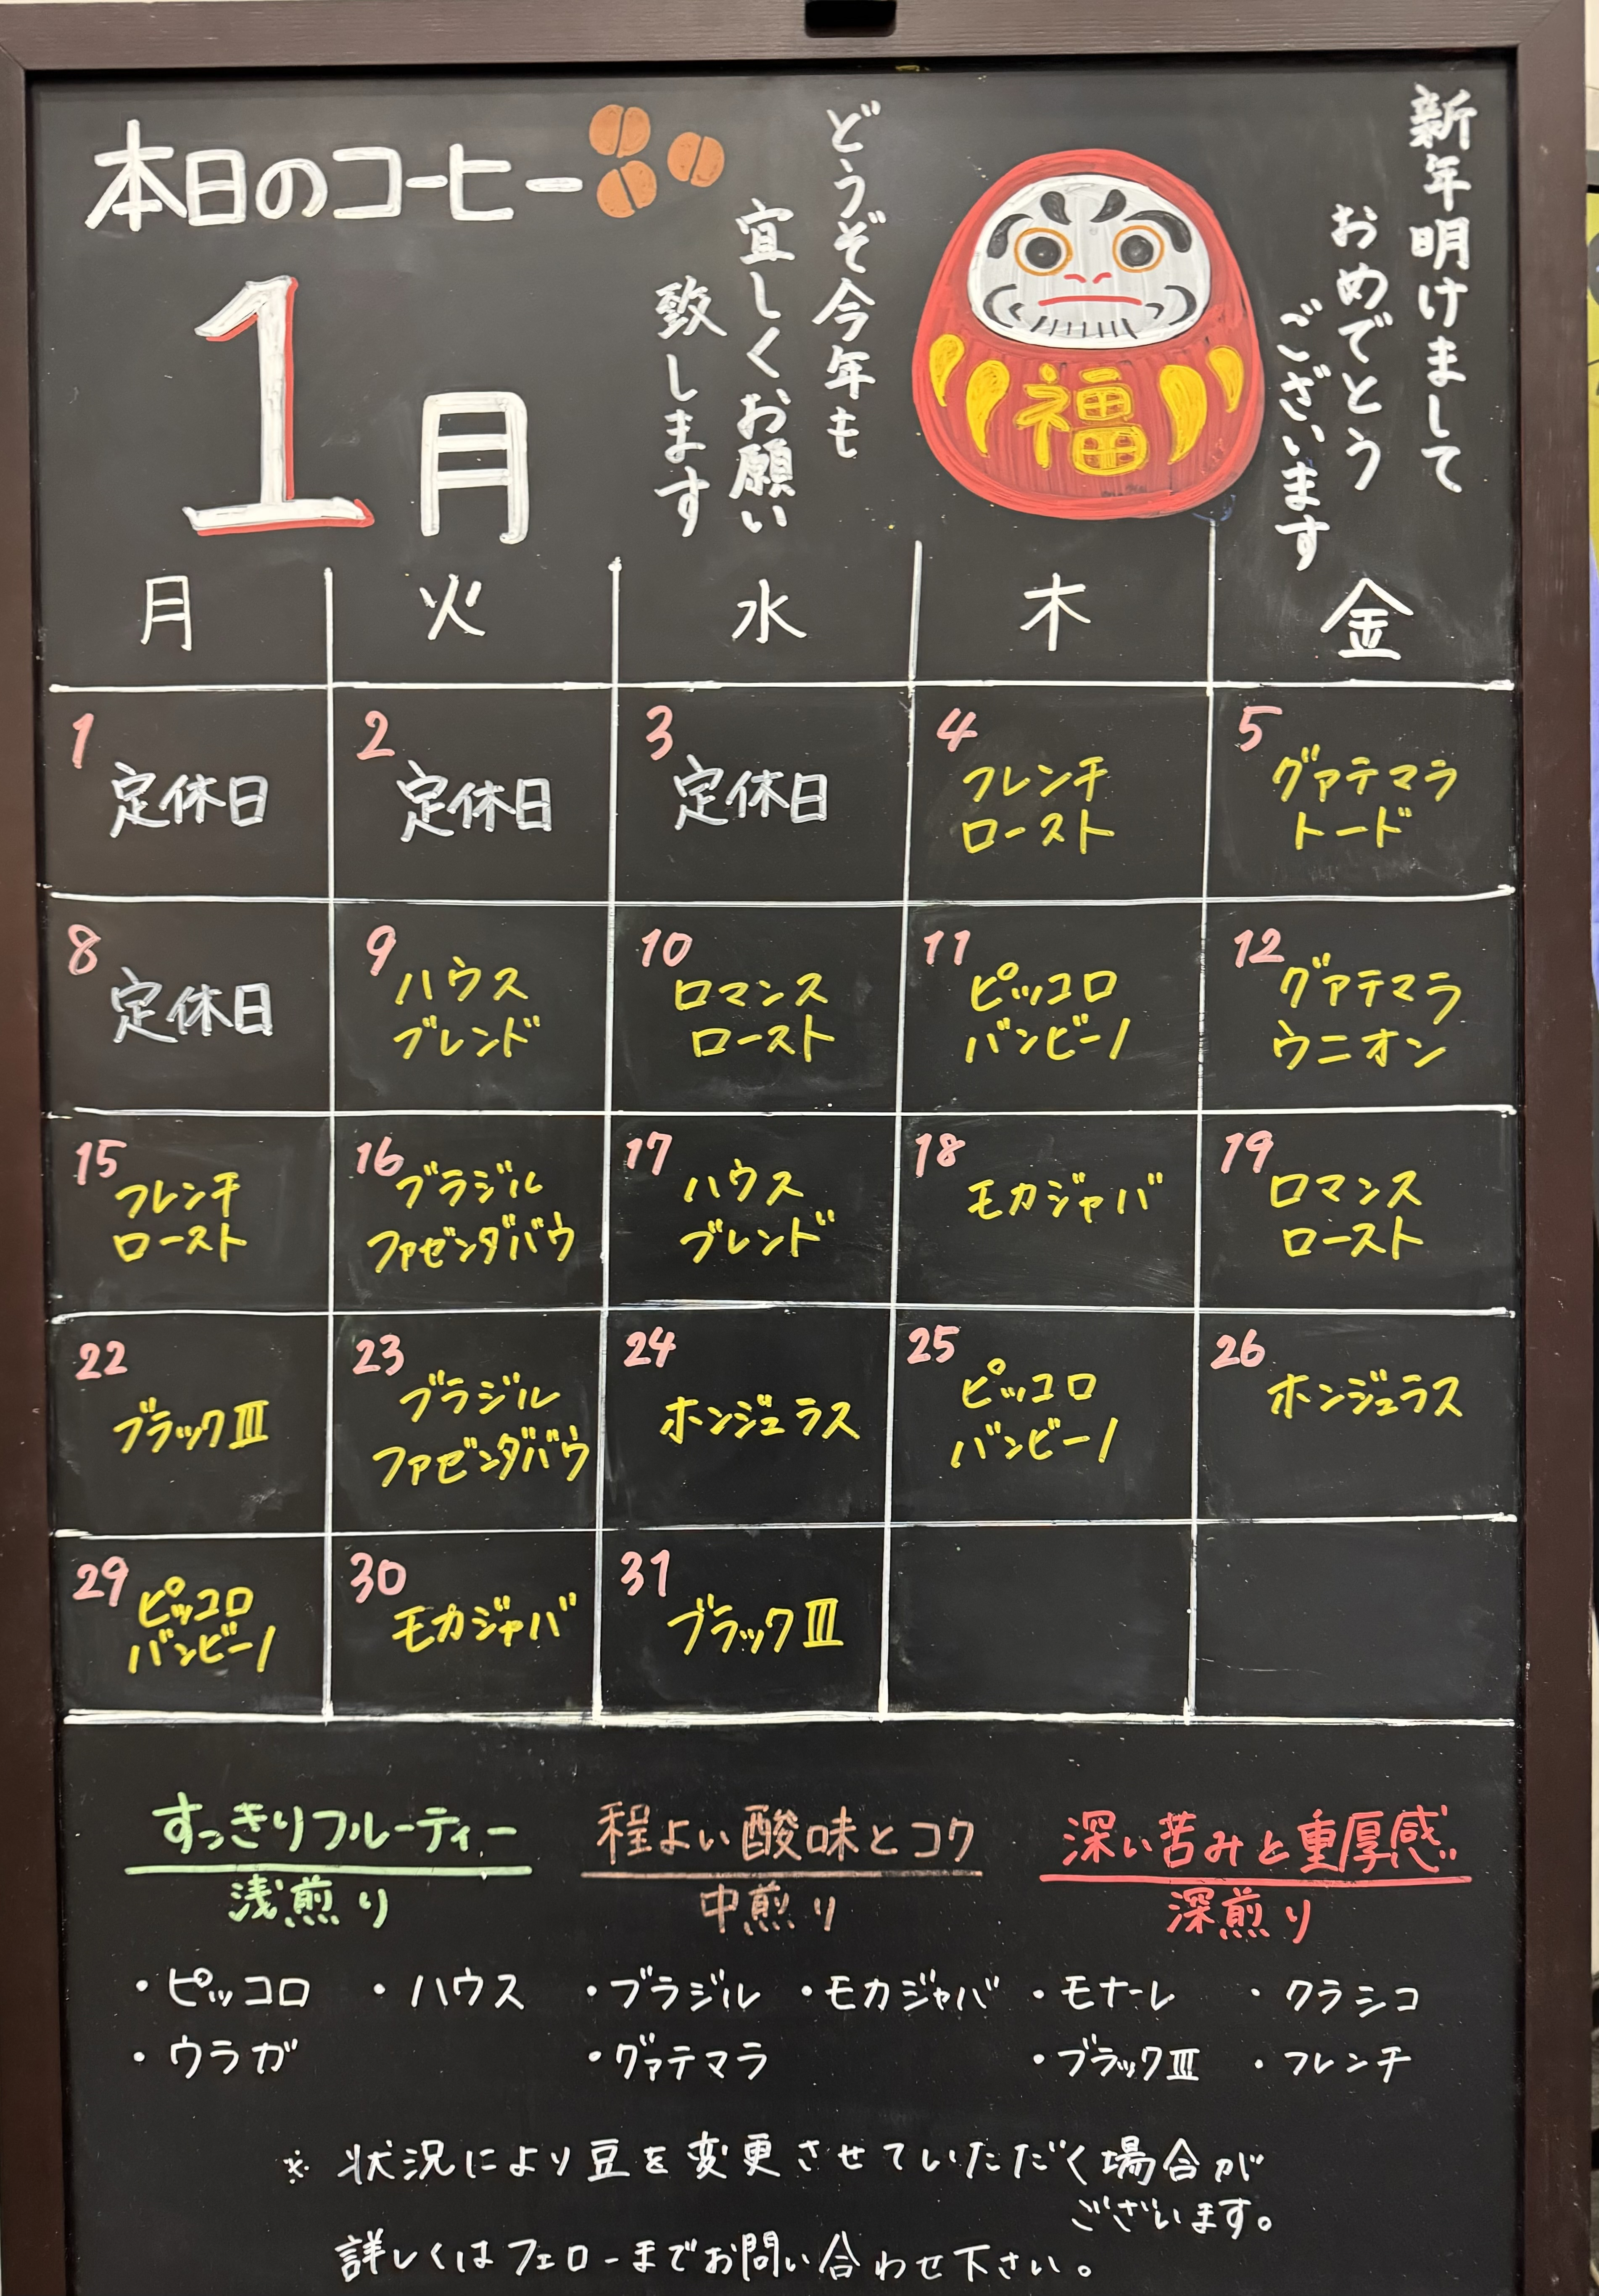 本日のコーヒー
1月
新年明けまして
おめでとう
ございます
福
どうぞ今年も
宜しくお願い
致します
月 火 水 木 金
1
定休日
2
定休日
3
定休日
4
フレンチ
ロースト
5
グァテマラ
トード
8
定休日
9
ハウス
ブレンド
10
ロマンス
ロースト
11
ピッコロ
バンビーノ
12
グァテマラ
ウニオン
15
フレンチ
ロースト
16
ブラジル
ファゼンダバウ
17
ハウス
ブレンド
18
モカジャバ
19
ロマンス
ロースト
22
ブラックⅢ
23
ブラジル
ファゼンダバウ
24
ホンジュラス
25
ピッコロ
バンビーノ
26
ホンジュラス
29
ピッコロ
バンビーノ
30
モカジャバ
31
ブラックⅢ
すっきりフルーティー
浅煎り
・ピッコロ ・ハウス
・ウラガ
程よい酸味とコク
中煎り
・ブラジル ・モカジャバ
・グァテマラ
深い苦みと重厚感
深煎り
・モナーレ ・クラシコ
・ブラックⅢ ・フレンチ
※ 状況により豆を変更させていただく場合が
ございます。
詳しくはフェローまでお問い合わせ下さい。